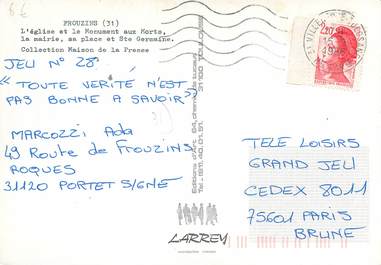 FROUZINS (31)
L'église et le Monument aux Morts,
la mairie, sa place et Ste Germaine.
Collection Maison de la Presse
JEU N° 28
"TOUTE VERITÉ N'EST
PAS BONNE A SAVOIR"
MARCOZZI Ada
49 Route de FROUZINS
ROQUES
31120 PORTET S/GNE
31100 TOULOUSE
Editions d'Art
Tél.
LARREY
2,20
TELE LOISIRS
GRAND JEU
CEDEX 8011
75601 PARIS
BRUNE